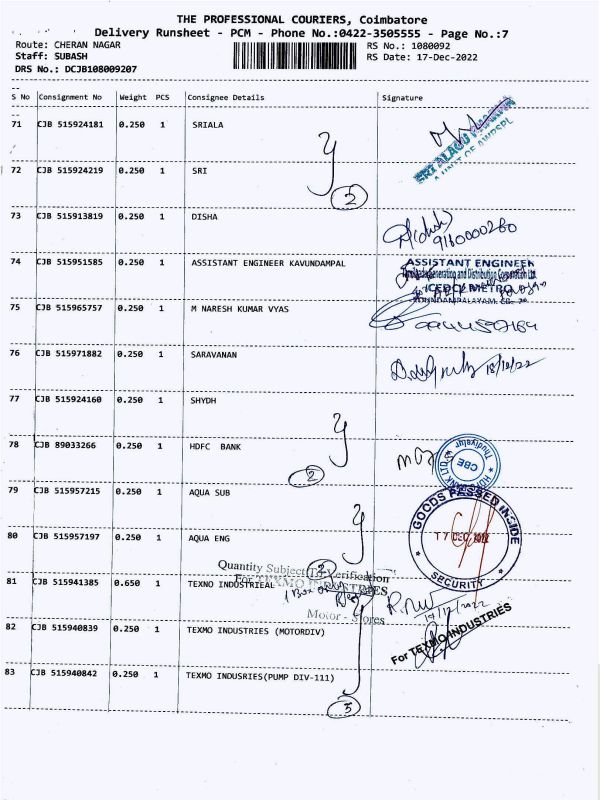 THE PROFESSIONAL COURIERS, Coimbatore
Delivery Runsheet - PCM - Phone No.:0422-3505555 - Page No.:7
Route: CHERAN NAGAR RS No.: 1080092
Staff: SUBASH RS Date: 17-Dec-2022
DRS No.: DCJB108009207
S No Consignment No Weight PCS Consignee Details Signature
71 CJB 515924181 0.250 1 SRIALA
72 CJB 515924219 0.250 1 SRI
2
73 CJB 515913819 0.250 1 DISHA
9160000280
74 CJB 515951585 0.250 1 ASSISTANT ENGINEER KAVUNDAMPAL
ASSISTANT ENGINEER
Generation and Distribution Corporation Ltd
75 CJB 515965757 0.250 1 M NARESH KUMAR VYAS
76 CJB 515971882 0.250 1 SARAVANAN
18/12/22
77 CJB 515924160 0.250 1 SHYDH
78 CJB 89033266 0.250 1 HDFC BANK
2
Thudiyalur
CBE
79 CJB 515957215 0.250 1 AQUA SUB
80 CJB 515957197 0.250 1 AQUA ENG
GOODS PASSED INSIDE
17 DEC 2022
SECURITY
Quantity Subject To Verification
For TEXMO INDUSTRIES
81 CJB 515941385 0.650 1 TEXNO INDUSTRIEAL
Motor - Stores
17/12/2022
82 CJB 515940839 0.250 1 TEXMO INDUSTRIES (MOTORDIV)
For TEXMO INDUSTRIES
83 CJB 515940842 0.250 1 TEXMO INDUSRIES(PUMP DIV-111)
3